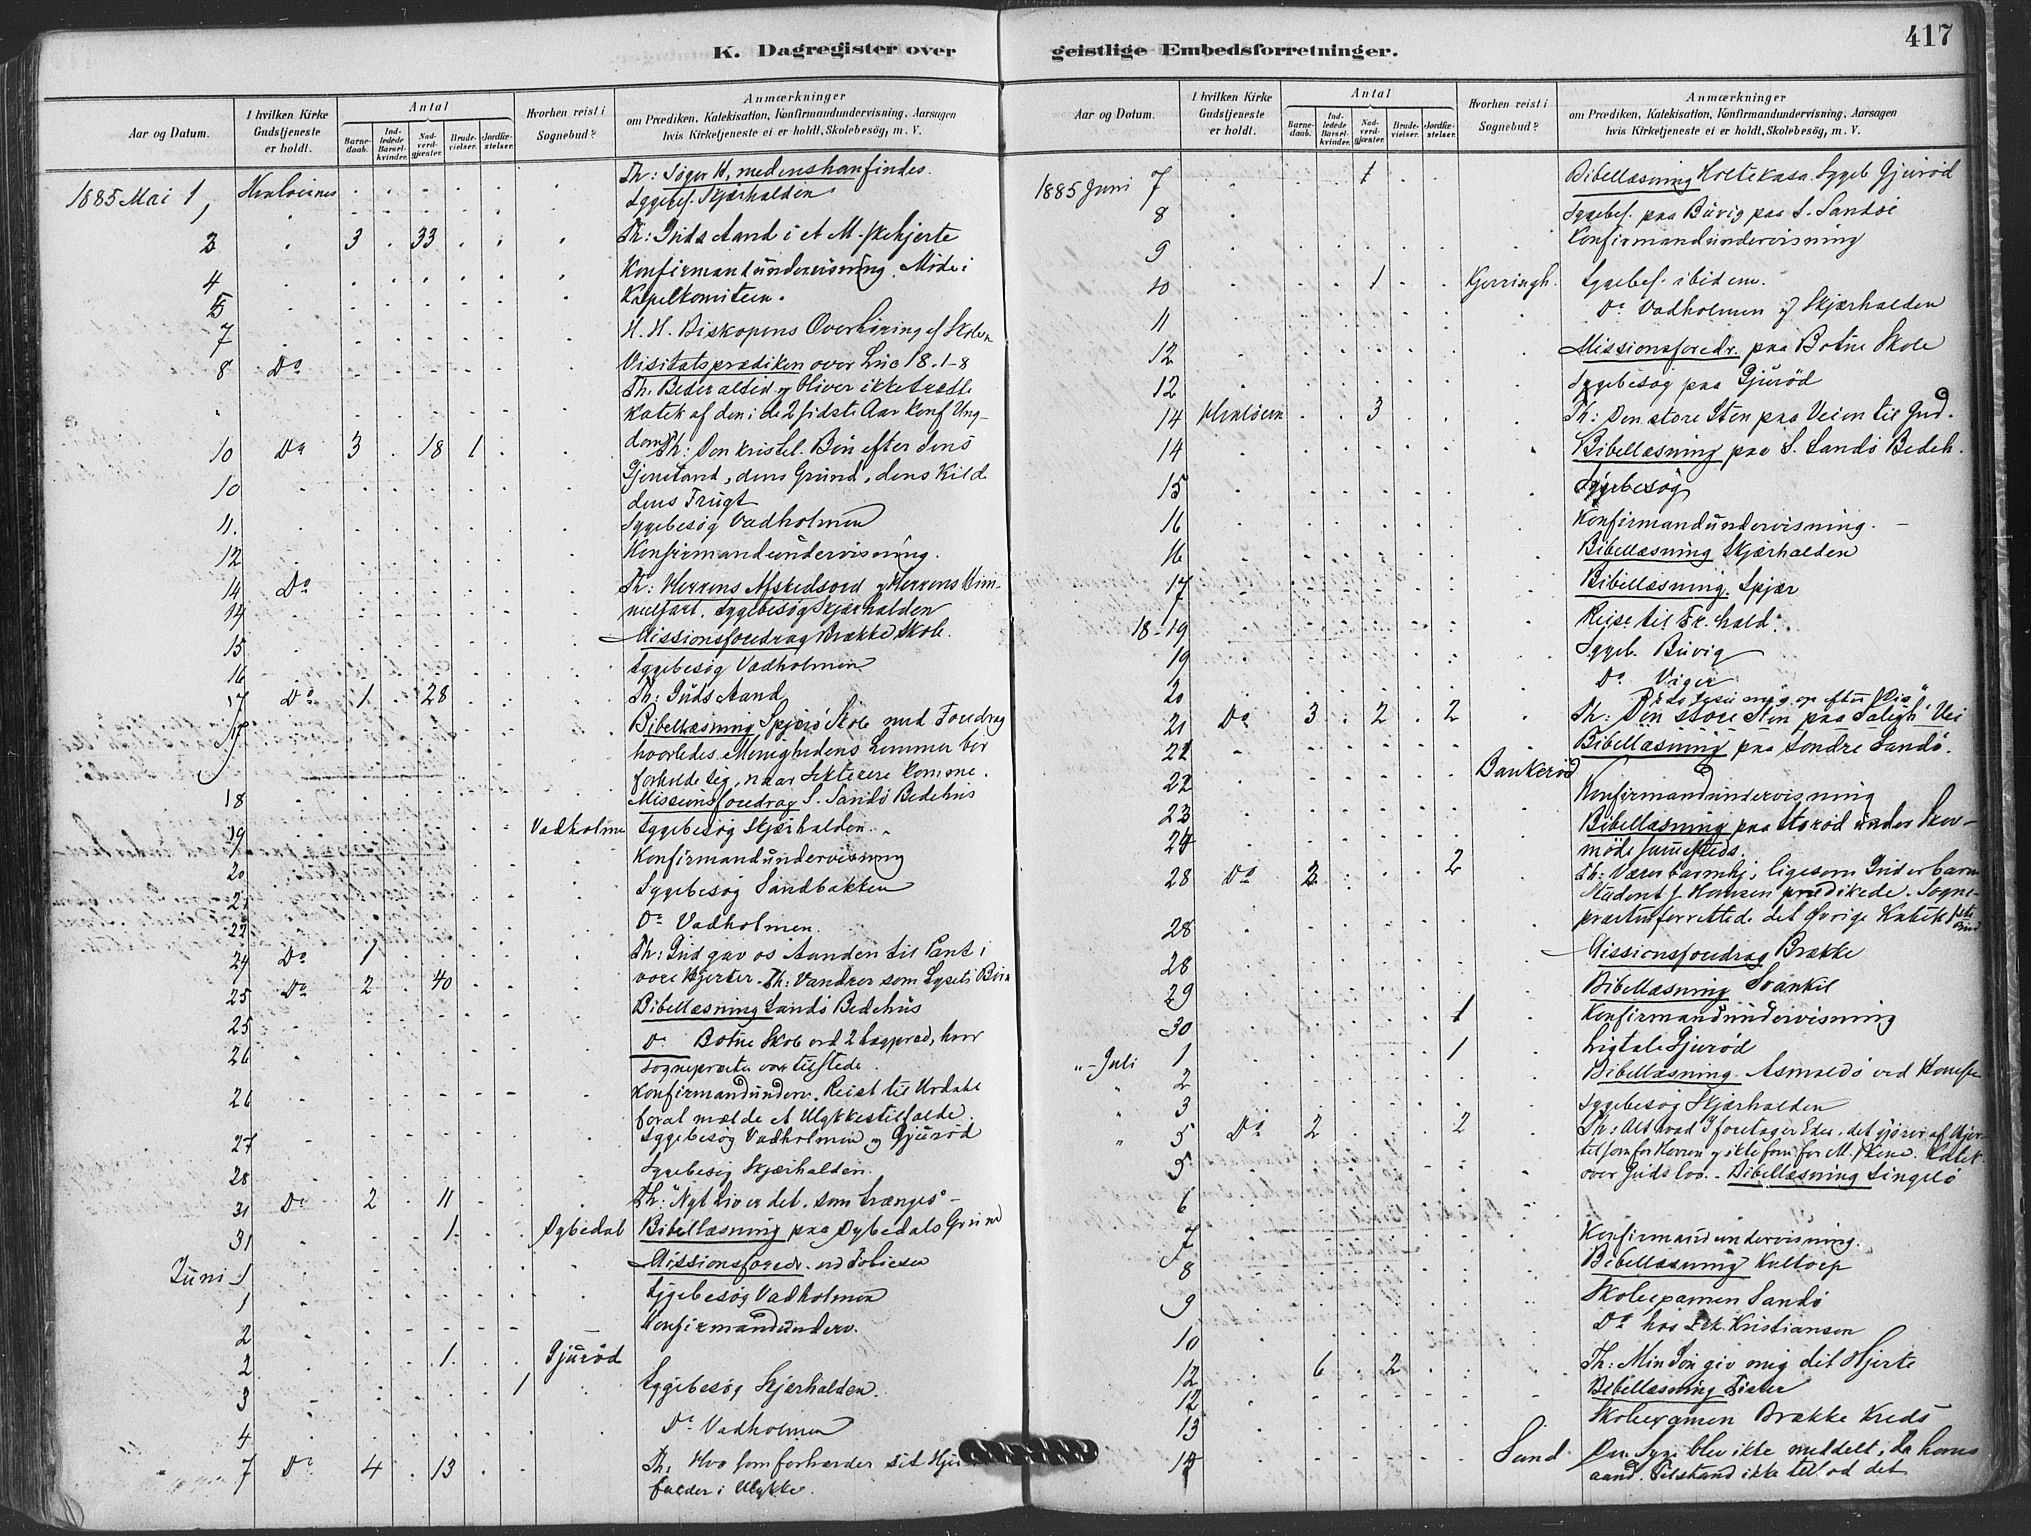 417
K. Dagregister over geistlige Embedsforretninger.
Aar og Datum.
I hvilken Kirke Gudstjeneste er holdt.
Antal
Barnedaab.
Indledede Barselkvinder.
Nadverdgjæster.
Brudevielser.
Jordfæstelser.
Hvorhen reist i Sognebud?
Anmærkninger
om Prædiken, Katekisation, Konfirmandundervisning, Aarsagen
hvis Kirketjeneste ei er holdt, Skolebesøg, m. V.
1885 Mai 1, Th: Søger H, medens han findes.
Sygebes. Skjærhalden
3 3 33 Th: Guds Aand i
4 Konfirmandundervisning. Møde i
5 Kapelkomiteen.
7 H. H. Biskopens Overhøring af Skolen
8 Do Visitatsprædiken over Luc 18. 1-8
Th. Beder altid og bliver ikke trætte
Katek af den i de 2 sidste Aar Konf Ung-
10 Do 3 18 1 dom Th: Den kristel. Bøn efter dens
10 Gjenstand, dens Grund, dens Kild
dens Frugt
11. Sygebesøg Vadholmen
12 Konfirmandundervisning.
14 Do Th: Herrens Afskedsord og Herrens Him-
14 melfart. Sygebesøg Skjærhalden
15 Missionsforedrag Brække Skole.
16 Sygebesøg Vadholmen
17 Do 1 28 Th: Guds Aand
17 Bibellæsning Spjærø Skole med Foredrag
hvorledes Menighedens Lemmer bør
forholde sig, naar Sekterere komme.
18 Missionsforedrag S. Sandø Bedehus
19 Vadholme Sygebesøg Skjærhalden.
Konfirmandundervisning
20 Sygebesøg Sandbakken
21
22 Do Vadholmen.
24 Do 1 Th: Gud gav os Aanden til Pant i
25 Do 2 40 vore Hjerter. Th: Vandrer som Lysets Børn
25 Bibellæsning Sandø Bedehus
26 Do Botne Skole ved 2 Lægpræd, hvor
Sognepræsten var tilstede.
26 Konfirmandunderv. Reist til Urdale
for at mælde et Ulykkestilfælde.
27 Sygebesøg Vadholmen og Gjurød
28 Sygebesøg Skjærhalden.
31 Do 2 11 Th: "Nyt Liv er det, som trænges" -
31 1. Dybedal Bibellæsning paa Dybedals Grund
Juni 1 Missionsforedr. ved Tobiesen
1 Sygebesøg Vadholmen
2 Konfirmandunderv.
2 1. Gjurød
3 1 Sygebesøg Skjærhalden.
4 Do Vadholmen
7 Do 4 13 Th: Hvo som forhærder sit Hjer
falder i Ulykke.
Aar og Datum.
I hvilken Kirke Gudstjeneste er holdt.
Antal
Barnedaab.
Indledede Barselkvinder.
Nadverdgjæster.
Brudevielser.
Jordfæstelser.
Hvorhen reist i Sognebud?
Anmærkninger
om Prædiken, Katekisation, Konfirmandundervisning, Aarsagen
hvis Kirketjeneste ei er holdt, Skolebesøg, m. V.
1885 Juni 7 1 Bibellæsning Holtekasa. Sygeb Gjurød
8 Sygebes. paa Buvig paa S. Sandø
9 Konfirmandundervisning
10 1 Sygebes. ibidem.
11 Do Vadholmen og Skjærhalden
12 Missionsforedr. paa Botne Skole
12 Sygebesøg paa Gjurød
14 3 Th: Den store Sten paa Veien til Gud.
14 Bibellæsning paa S. Sandø Bedeh.
15 Sygebesøg
16 Konfirmandundervisning.
16 Bibellæsning Skjærhalden
17 Bibellæsning. Spjær
18-19 Reise til Fr.hald.
19 Sygeb. Buvig
20 Do Viger
21 Do 3 2 2 Th: Den store Sten paa Saligh. Vei
22 Bibellæsning paa Søndre Sandø.
22 Bankerød
23 Konfirmandundervisning
24 Bibellæsning paa Storød
28 Do 2 Th: Værer barmhj. ligesom Gud er barm
Student J. Hansen prædikede. Sogne-
28 præsten forrettede det Øvrige
28 Missionsforedrag Brække
29 Bibellæsning
30 1 Konfirmandundervisning
"-Juli 1 1 Ligtale Gjurød
" 2 Bibellæsning. Asmaldø
" 3 Sygebesøg Skjærhalden
" 5 Do 2 2 Th: Alt hvad I foretager Eder, det gjører af Hjer-
5 tet som for Herren og ikke som for M.skene. Katek.
over Guds Lov. - Bibellæsning Singelø
6
7 Konfirmandundervisning.
8 Bibellæsning
9 Skoleexamen Sandø
10 Do hos Kristiansen
12 6 2 Th: Min Søn giv mig dit Hjerte
12 Bibellæsning
13 Skoleexamen Brække Kreds
14 Sand Den Syge blev ikke meddelt, da hans
aand. Tilstand ikke tillod det